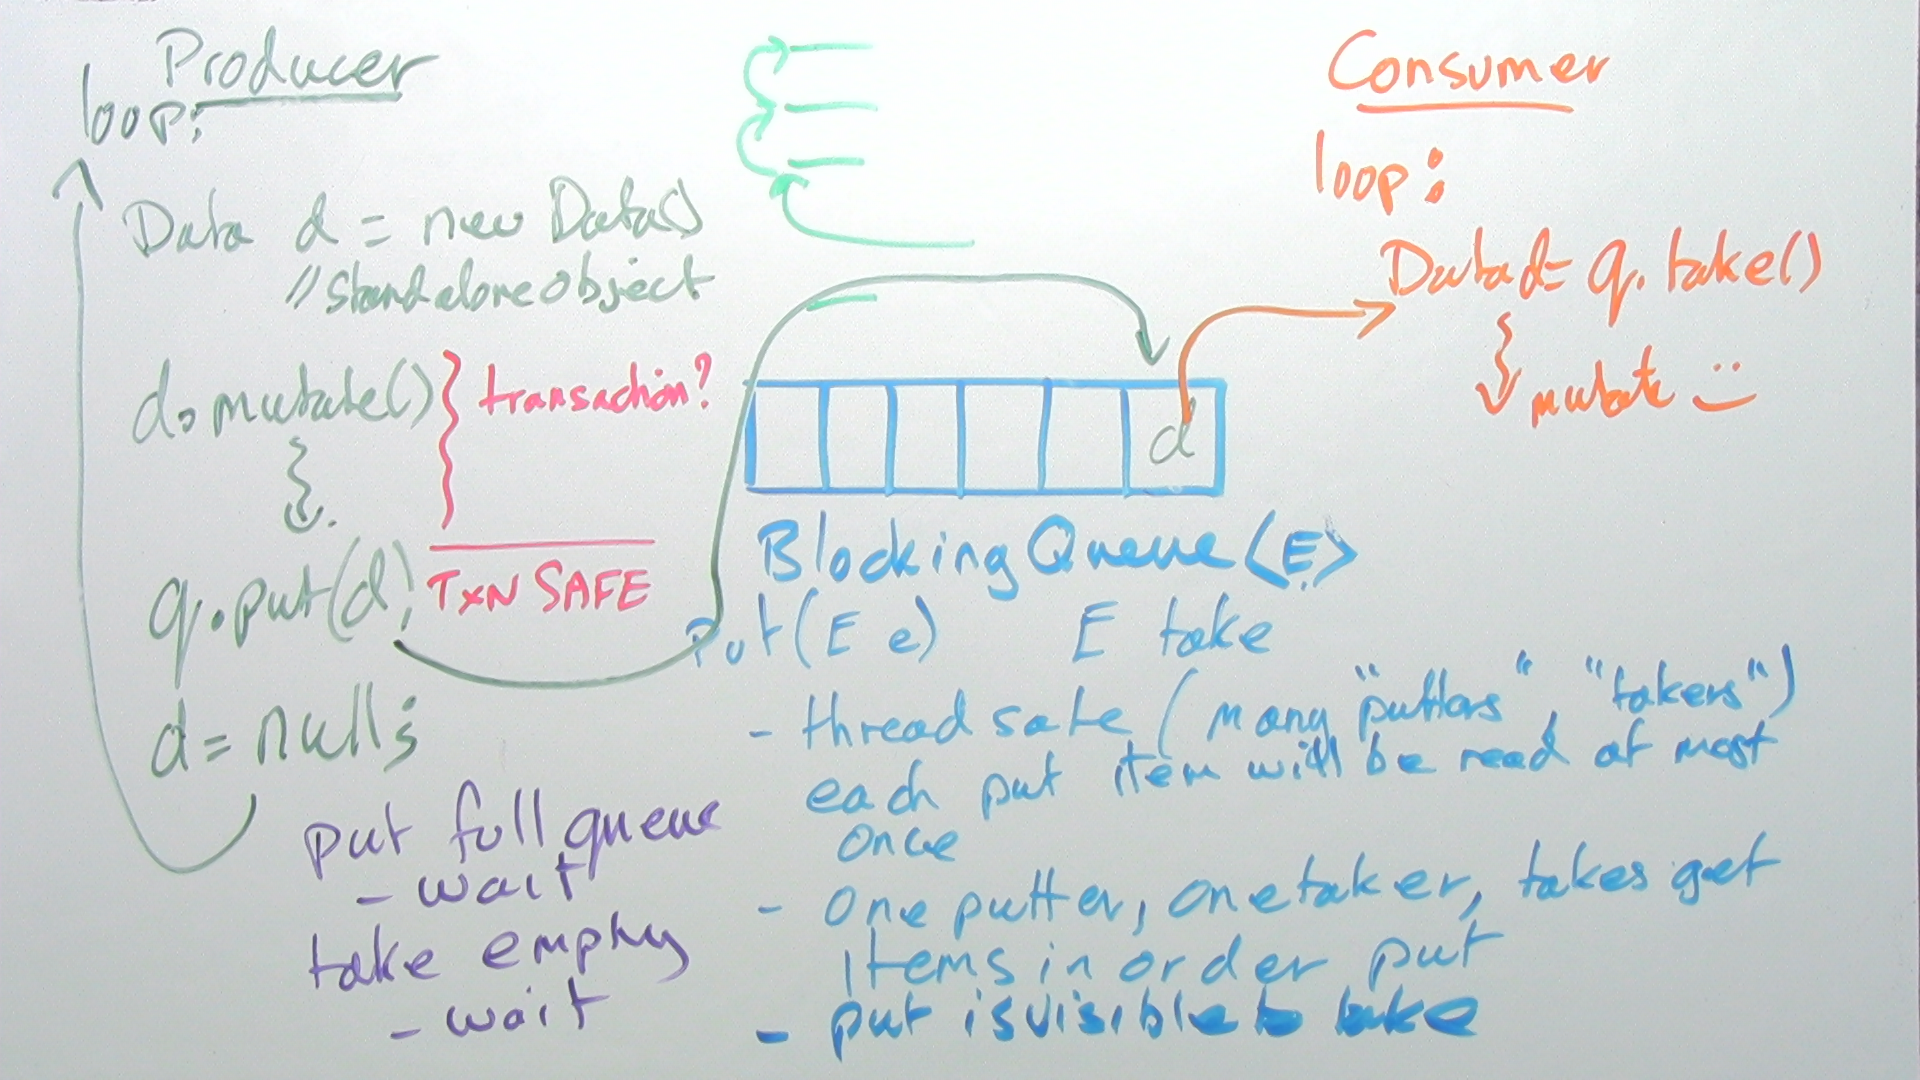 Producer
loop:
Data d = new Data()
// standalone object
d.mutate()
transaction?
q.put(d)
TXN SAFE
d = null;
put full queue
- wait
take empty
- wait
d
Blocking Queue <E>
Put (E e) E take
- thread safe (many "putters", "takers")
each put item will be read at most
once
- One putter, one taker, takes get
items in order put
- put is visible to take
Consumer
loop:
Data d = q.take()
mutate